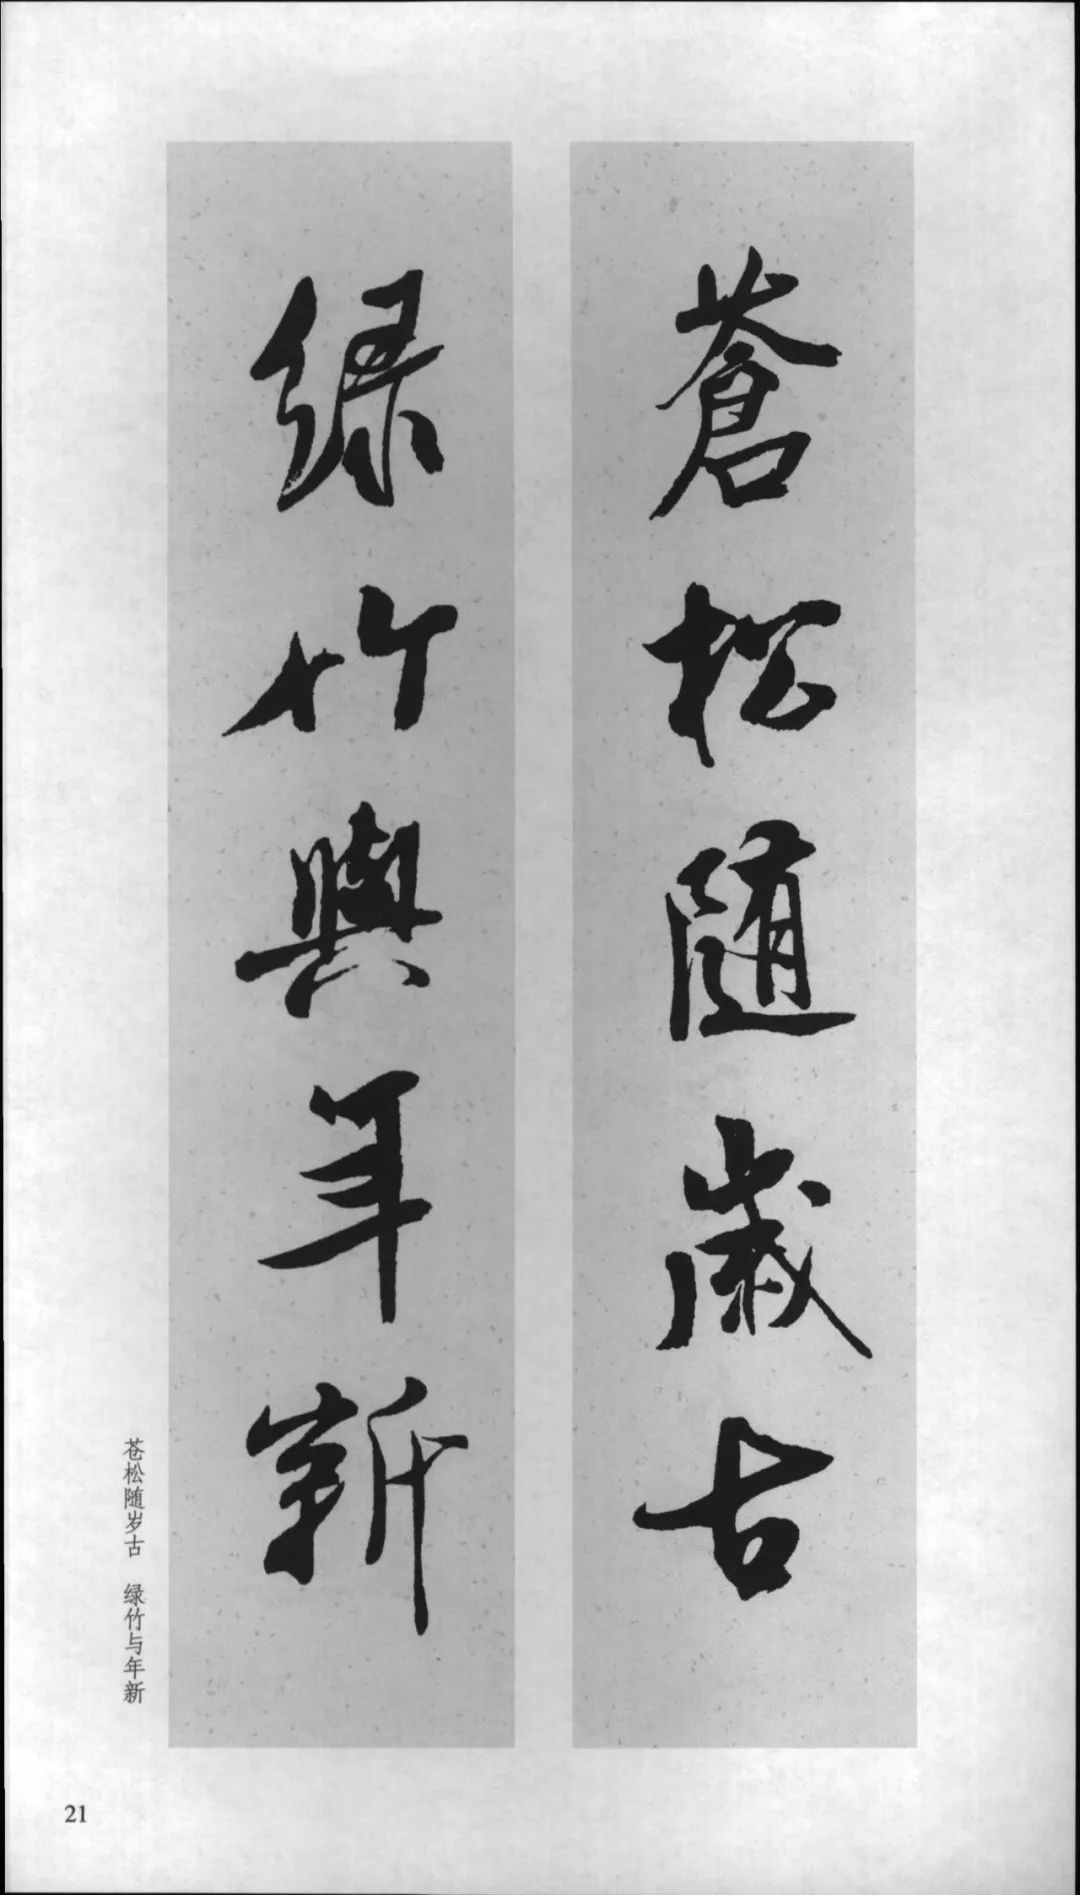 蒼松随歲古
绿竹與年新
苍松随岁古 绿竹与年新
21